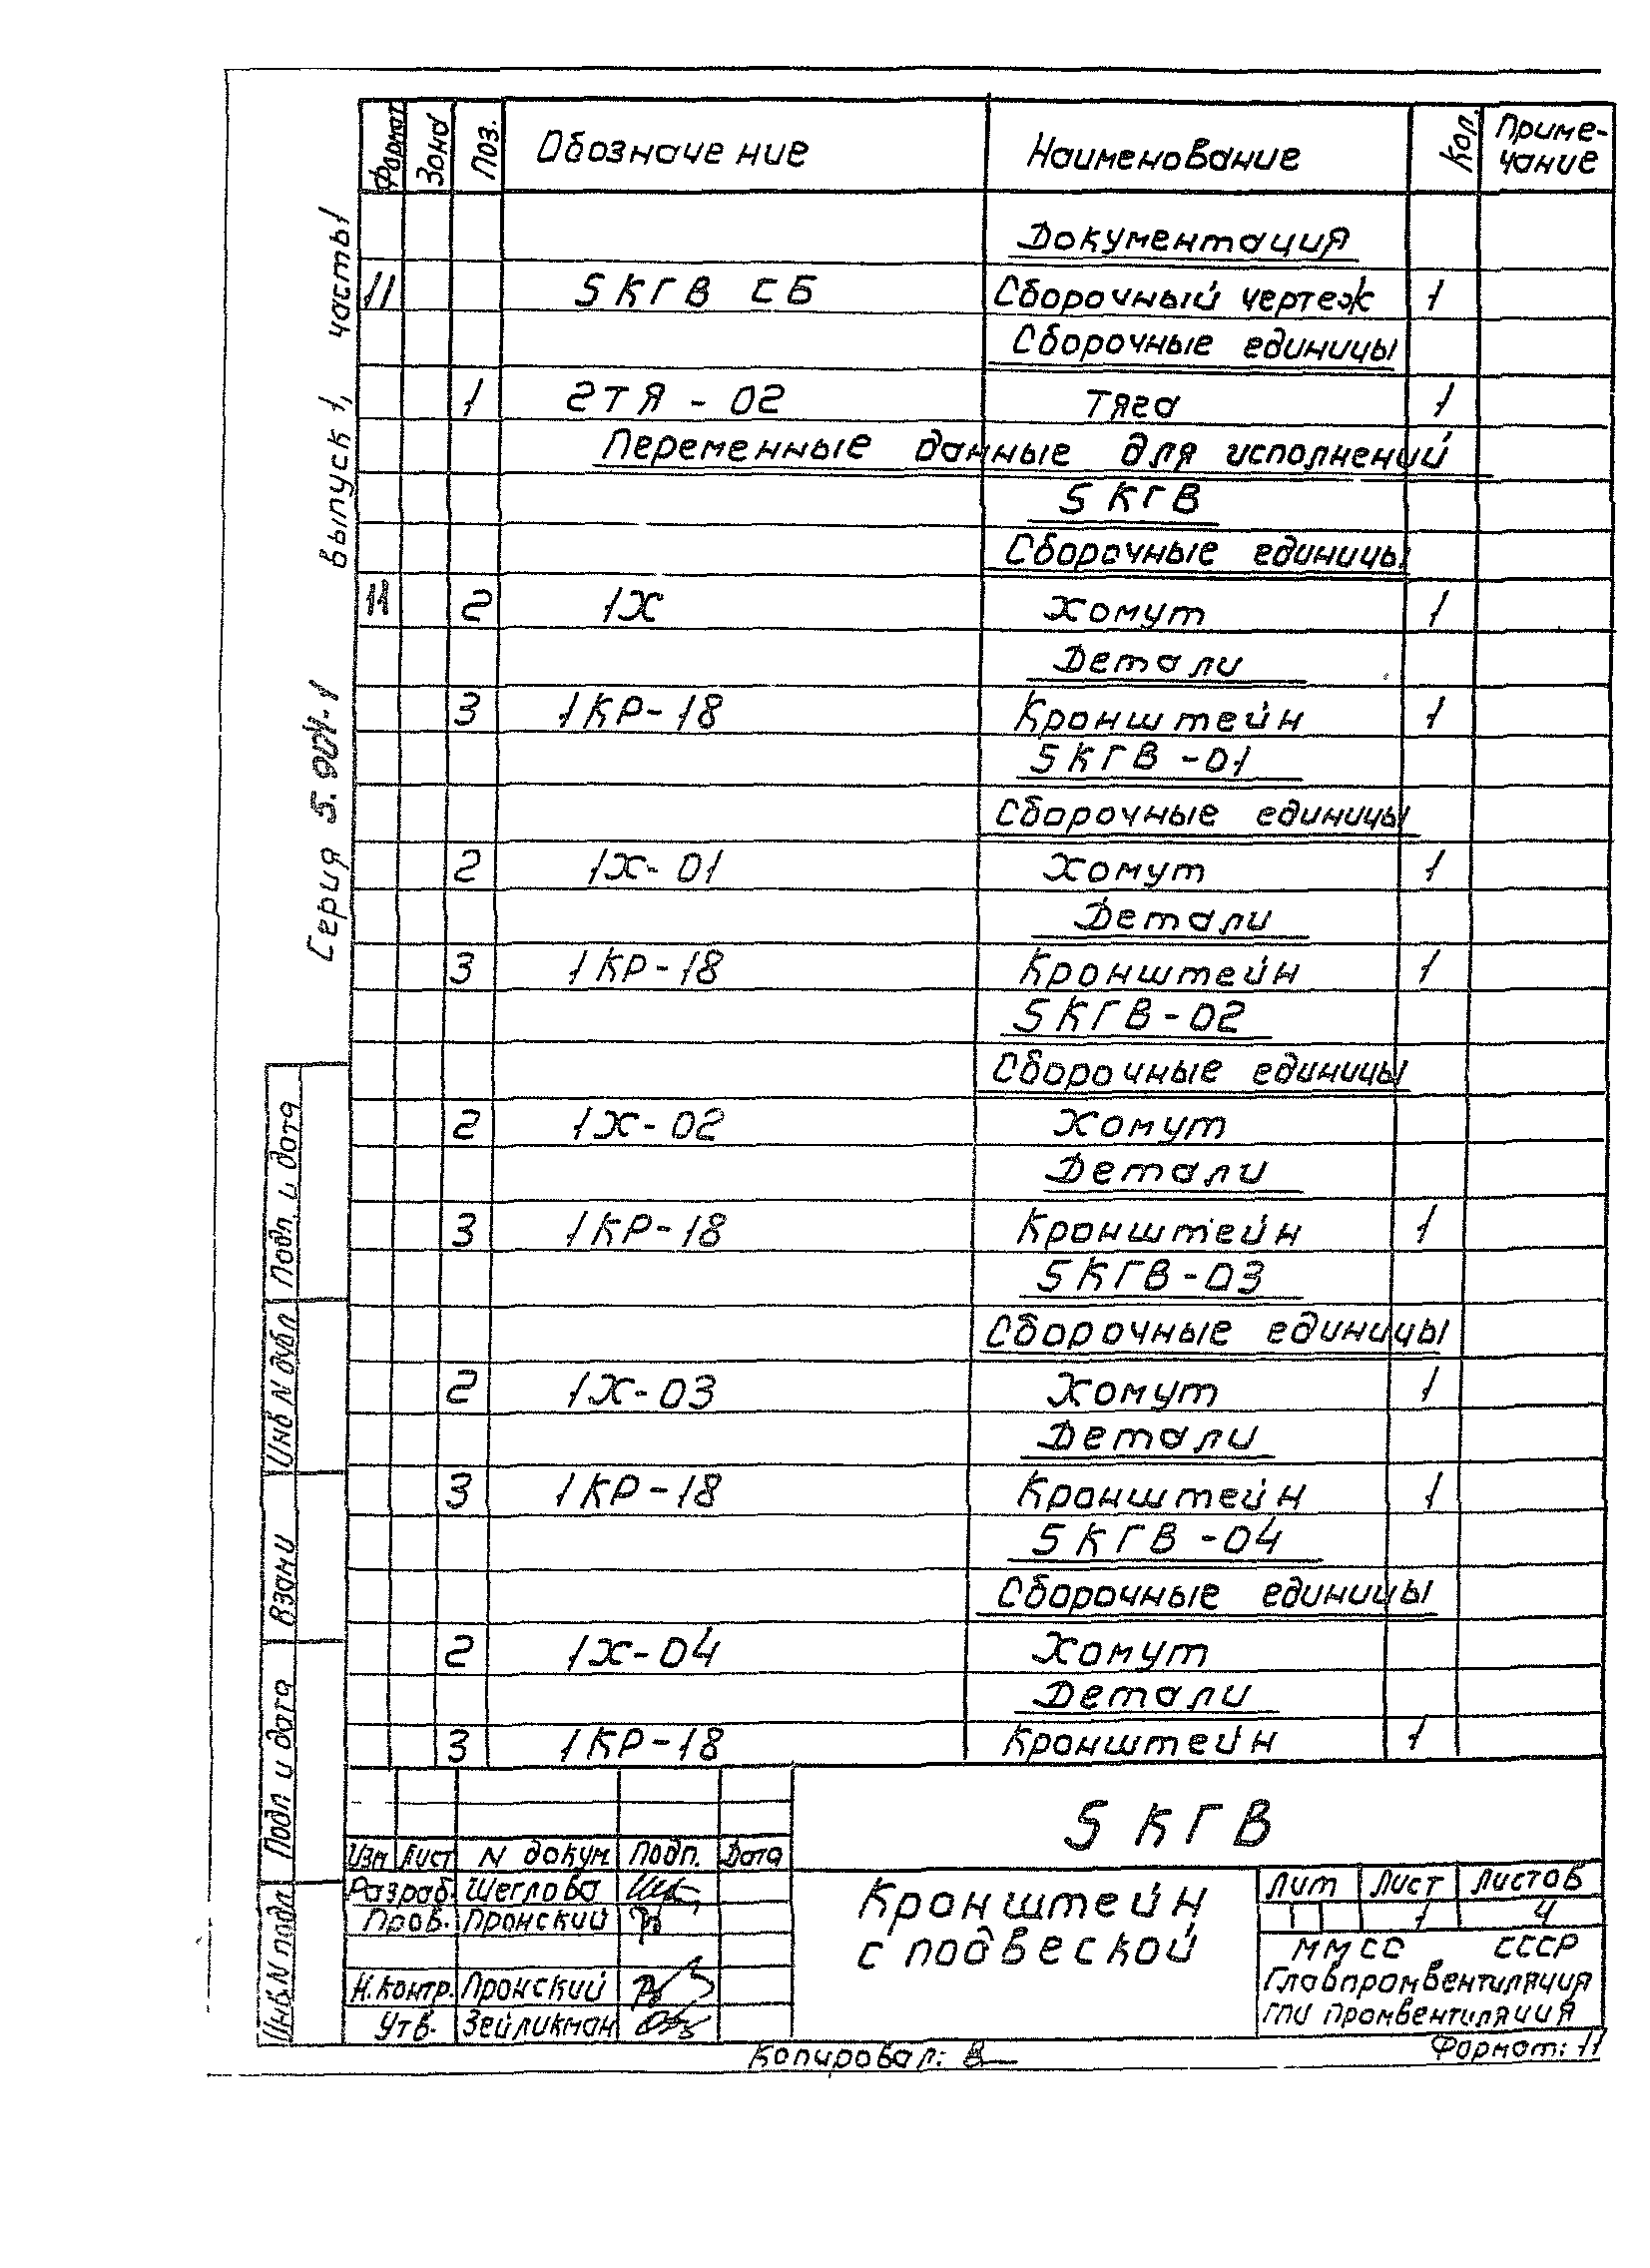 Формат Зона Поз. Обозначение Наименование Кол. Приме-
чание
Документация
11 5КГВ СБ Сборочный чертеж 1
Сборочные единицы
1 2ТЯ-02 Тяга 1
Переменные данные для исполнений
5КГВ
Сборочные единицы
11 2 1Х Хомут 1
Детали
3 1КР-18 Кронштейн 1
5КГВ-01
Сборочные единицы
2 1Х-01 Хомут 1
Детали
3 1КР-18 Кронштейн 1
5КГВ-02
Сборочные единицы
2 1Х-02 Хомут
Детали
3 1КР-18 Кронштейн 1
5КГВ-03
Сборочные единицы
2 1Х-03 Хомут 1
Детали
3 1КР-18 Кронштейн 1
5КГВ-04
Сборочные единицы
2 1Х-04 Хомут
Детали
3 1КР-18 Кронштейн 1
Серия 5.904-1 выпуск 1, часть 1
Подп. и дата
Инв N дубл
Взам и
Подп и дата
Инв.N подл
5КГВ
Изм Лист N докум. Подп. Дата
Разраб. Щеглова
Пров. Пронский
Н.контр. Пронский
Утв. Зейликман
Кронштейн
с подвеской
Лит Лист Листов
1 4
ММСС СССР
Главпромвентиляция
ГПИ Промвентиляция
Копировал:
Формат: 11